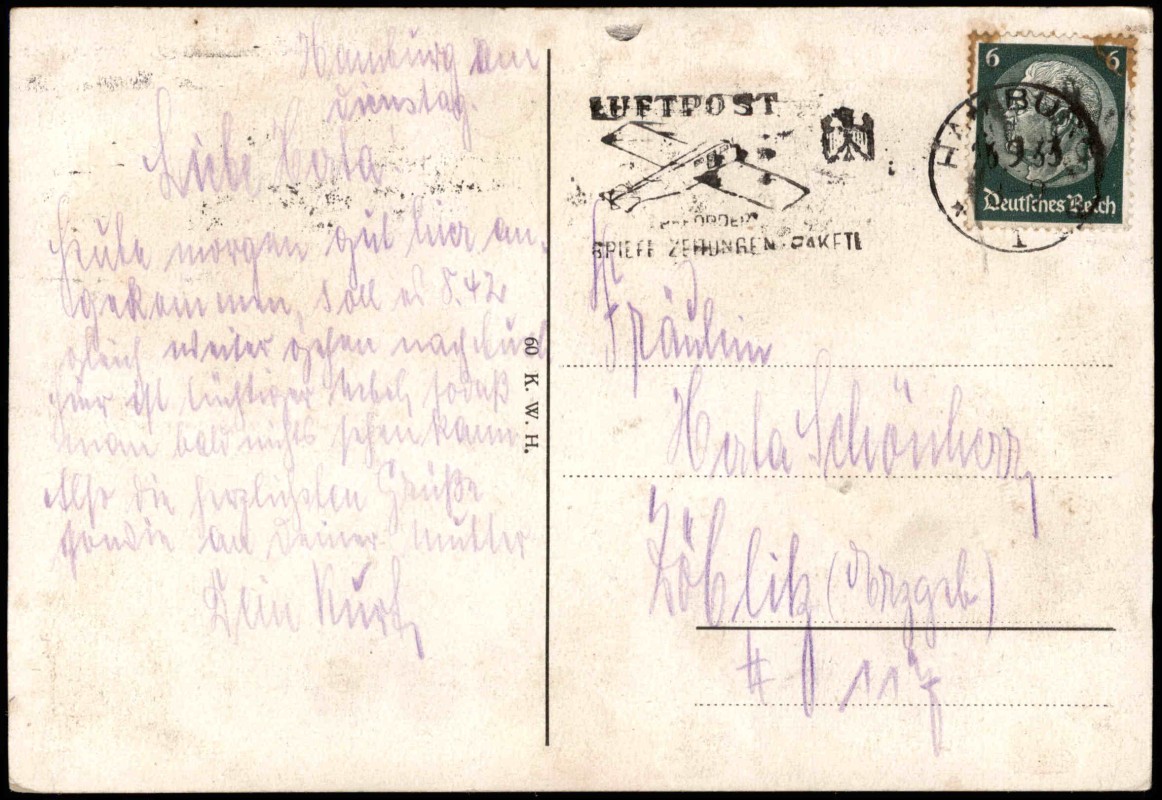 Hamburg am
Dienstag.
Liebe Herta!
Heute morgen gut hier an-
gekommen, soll es 8.42
gleich weiter gehen nach
hier ist tüchtiger Nebel, sodaß
man bald nichts sehen kann
Also die herzlichsten Grüße
an Deiner Mutter
Dein Kurt
60 K. W. H.
LUFTPOST
BEFÖRDERT
BRIEFE ZEITUNGEN PAKETE
6 6
Deutsches Reich
HAMBURG
26.9.33
1
Fräulein
Herta Schönherr,
Zöblitz (Erzgeb)